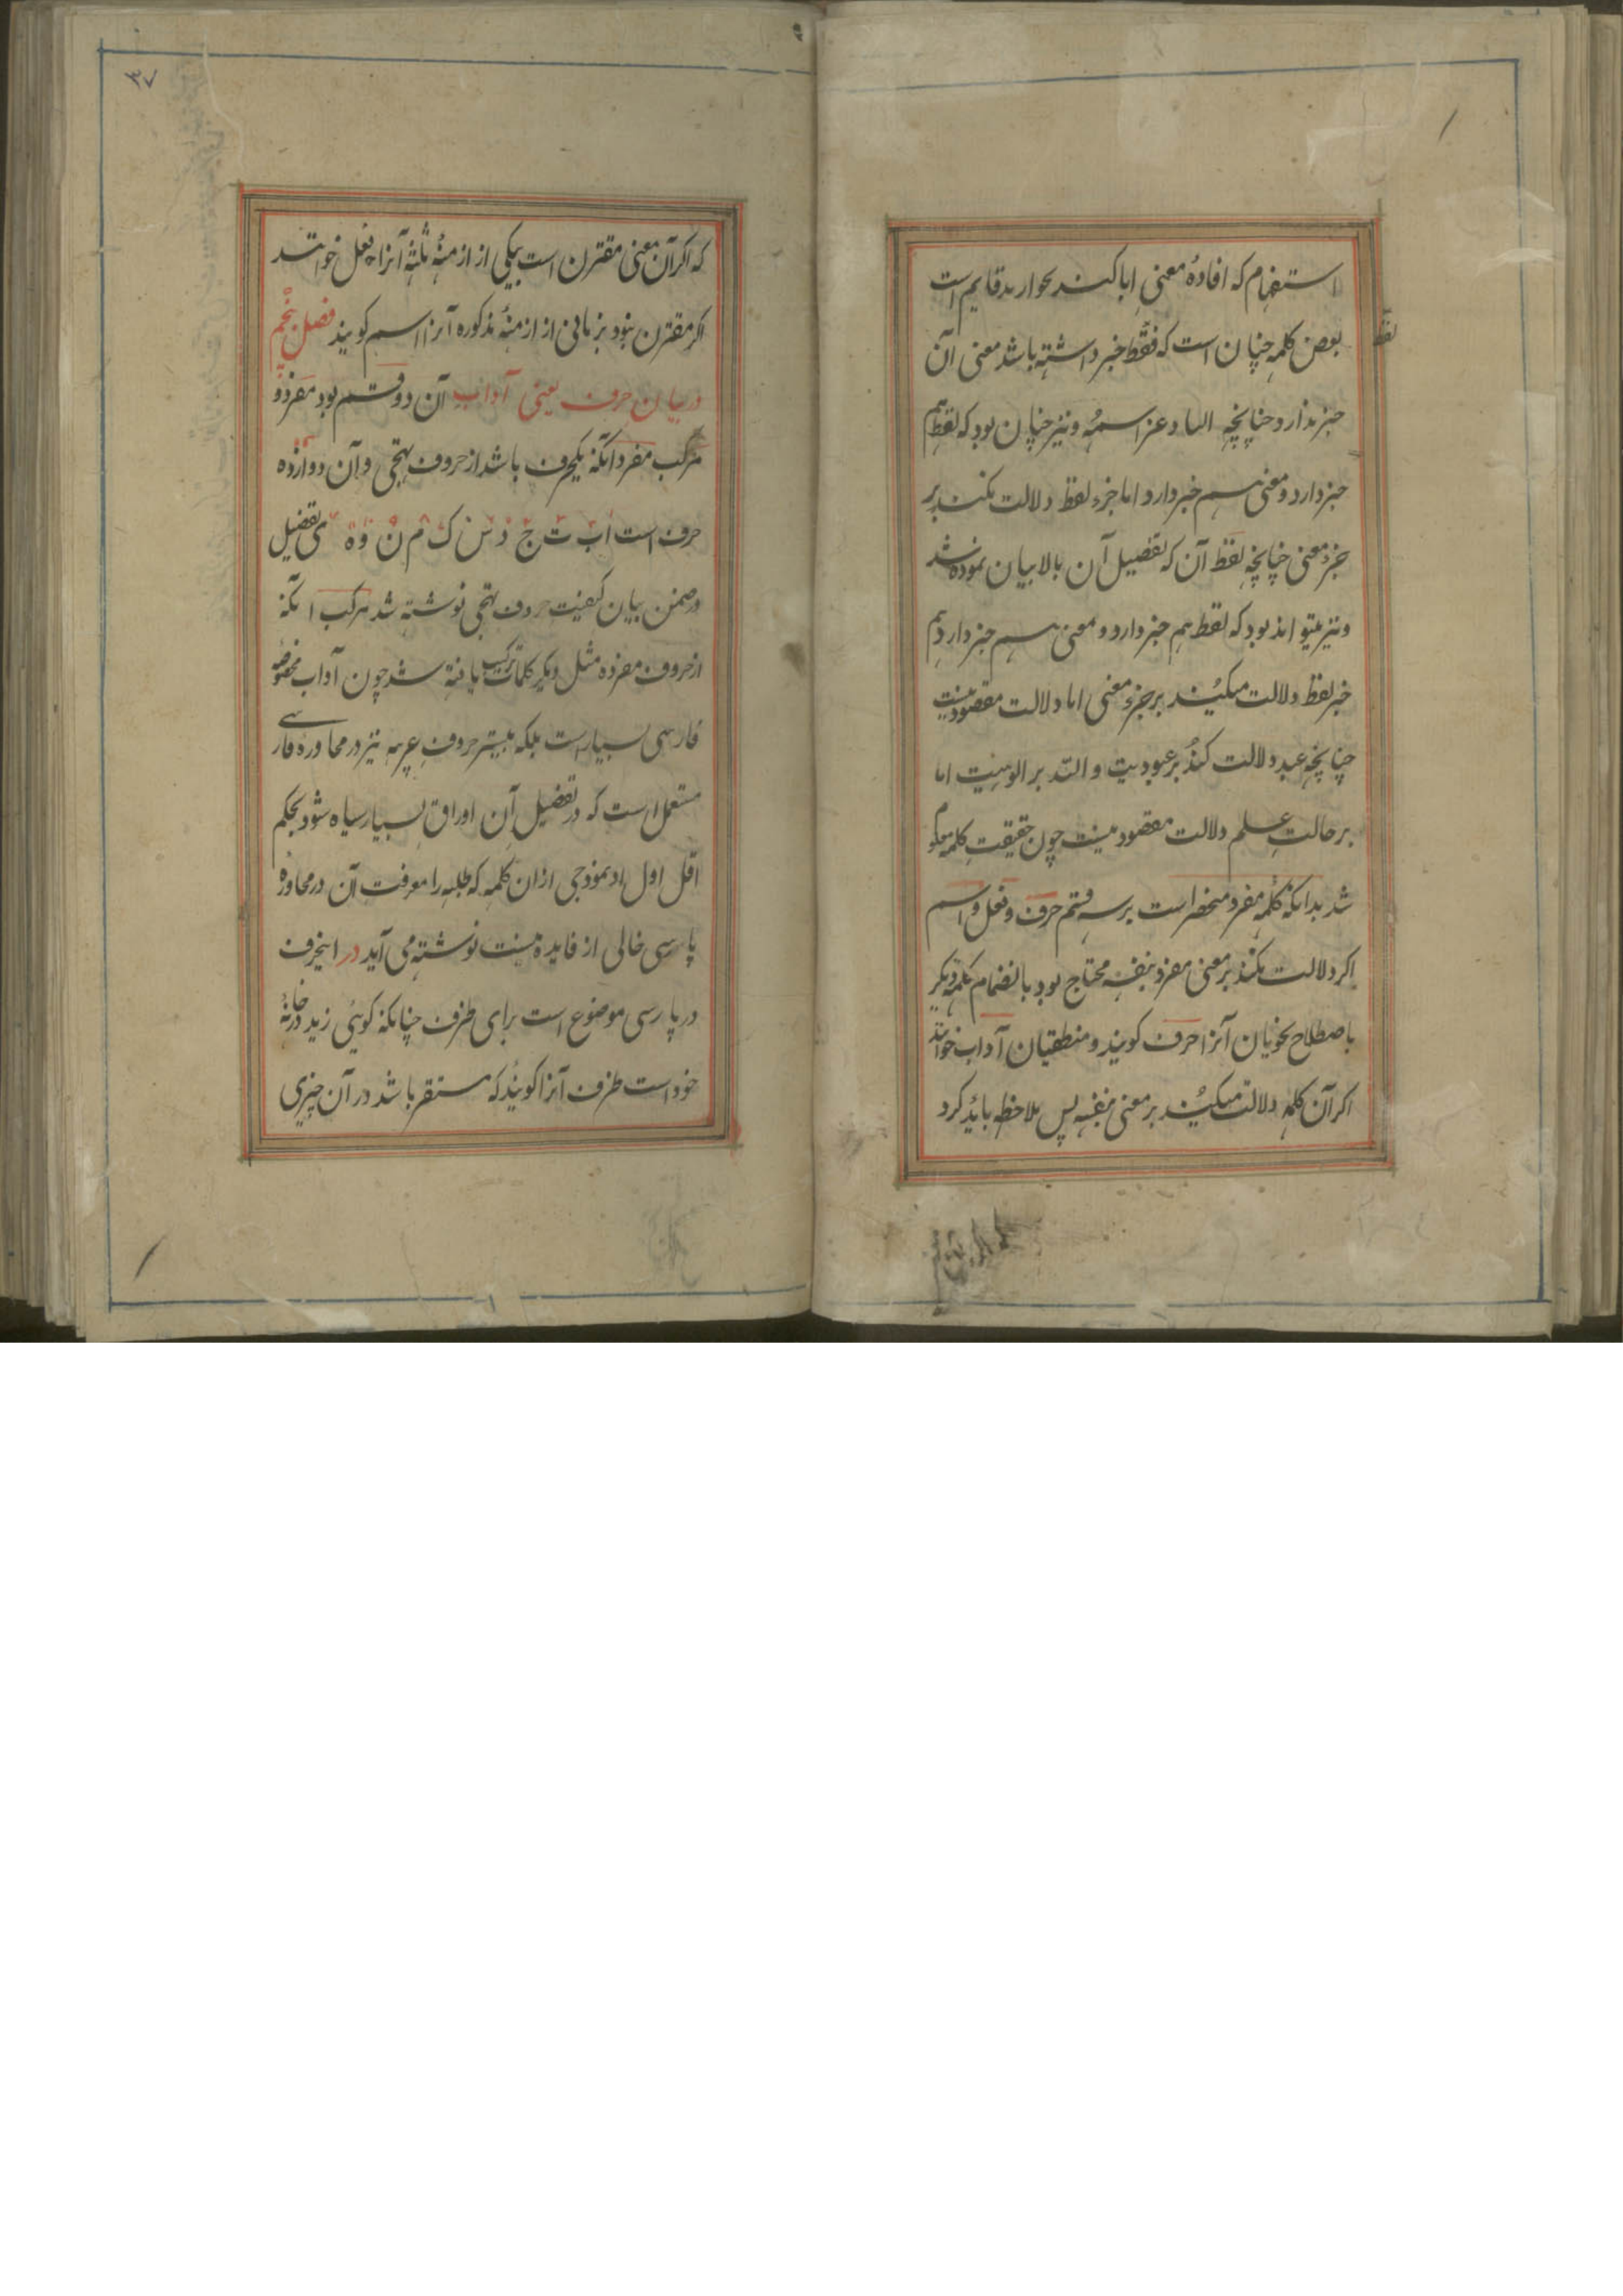 استفهام که افادهٔ معنی ایا کند بحوار بد قایم است
بعض کلمه چنان است که فقط جز داشته باشد معنی آن
لفظ
جز ندارد چنانچه الله عز اسمه و نیز چنان بود که لفظ هم
جز دارد و معنی هم جز دارد اما جزء لفظ دلالت نکند بر
جزء معنی چنانچه لفظ آن که تفصیل آن بالا بیان نموده شد
و نیز میتواند بود که لفظ هم جز دارد و معنی هم جز دارد هم
جز لفظ دلالت میکند بر جزء معنی اما دلالت مقصود نیست
چنانچه عبد دلالت کند بر عبودیت و الله بر الوهیت اما
بر حالت علم دلالت مقصود نیست چون حقیقت کلمه معلوم
شد بدانکه کلمه مفرد منحصر است بر سه قسم حرف و فعل و اسم
اکر دلالت نکند بر معنی مفرد بنفسه محتاج بود بانضمام کلمه دیکر
باصطلاح نحویان آنرا حرف کویند و منطقیان آداب خوانند
اکر آن کلمه دلالت میکند بر معنی بنفسه پس ملاحظه باید کرد
۳۷
که اکر آن معنی مقترن است بیکی از ازمنهٔ ثلثه آنرا فعل خوانند
اکر مقترن نبود بزمانی از ازمنهٔ مذکوره آنرا اسم کویند فصل پنجم
در بیان حرف یعنی آداب آن دو قسم بود مفرد و
مرکب مفرد آنکه یکحرف باشد از حروف تهجی و آن دوازده
حرف است ا ب ت ج د ش ک م ن و ه ی تفصیل
در ضمن بیان کیفیت حروف تهجی نوشته شد مرکب آنکه
از حروف مفرده مثل دیکر کلمات ترکیب یافته شد چون آداب مخصوصه
فارسی بسیار است بلکه بیشتر حروف عربیه نیز در محاورهٔ فارسی
مستعمل است که در تفصیل آن اوراق بسیار سیاه شود بحکم
اقل اول انموذجی ازان کلمه که طلبه را معرفت آن در محاورهٔ
پارسی خالی از فایده نیست نوشته می آید در اینحرف
در پارسی موضوع است برای ظرف چنانکه کوئی زید در خانهٔ
خود است ظرف آنرا کویند که مستقر باشد در آن چیزی